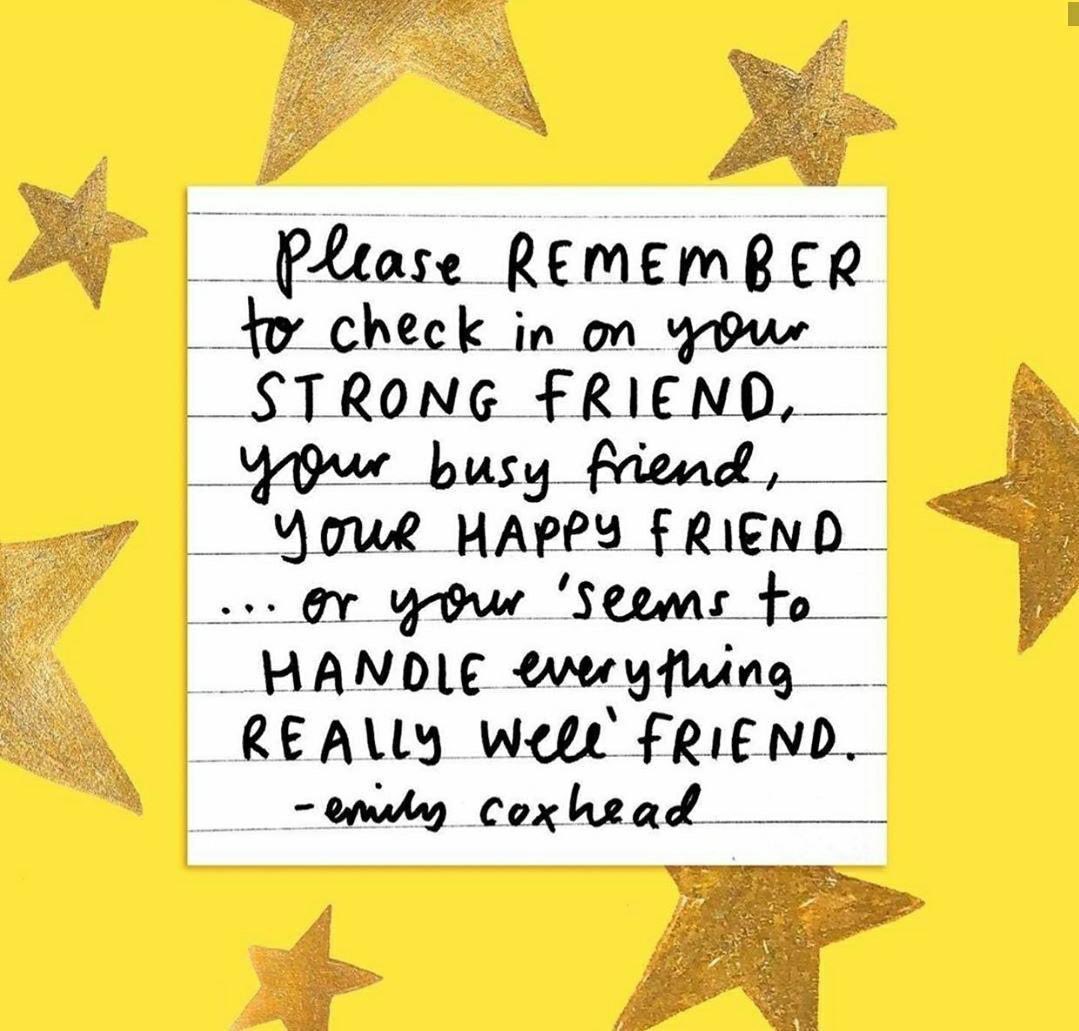 Please REMEMBER
to check in on your
STRONG FRIEND,
your busy friend,
YOUR HAPPY FRIEND
... or your 'seems to
HANDLE everything
REALLY well' FRIEND.
- emily coxhead